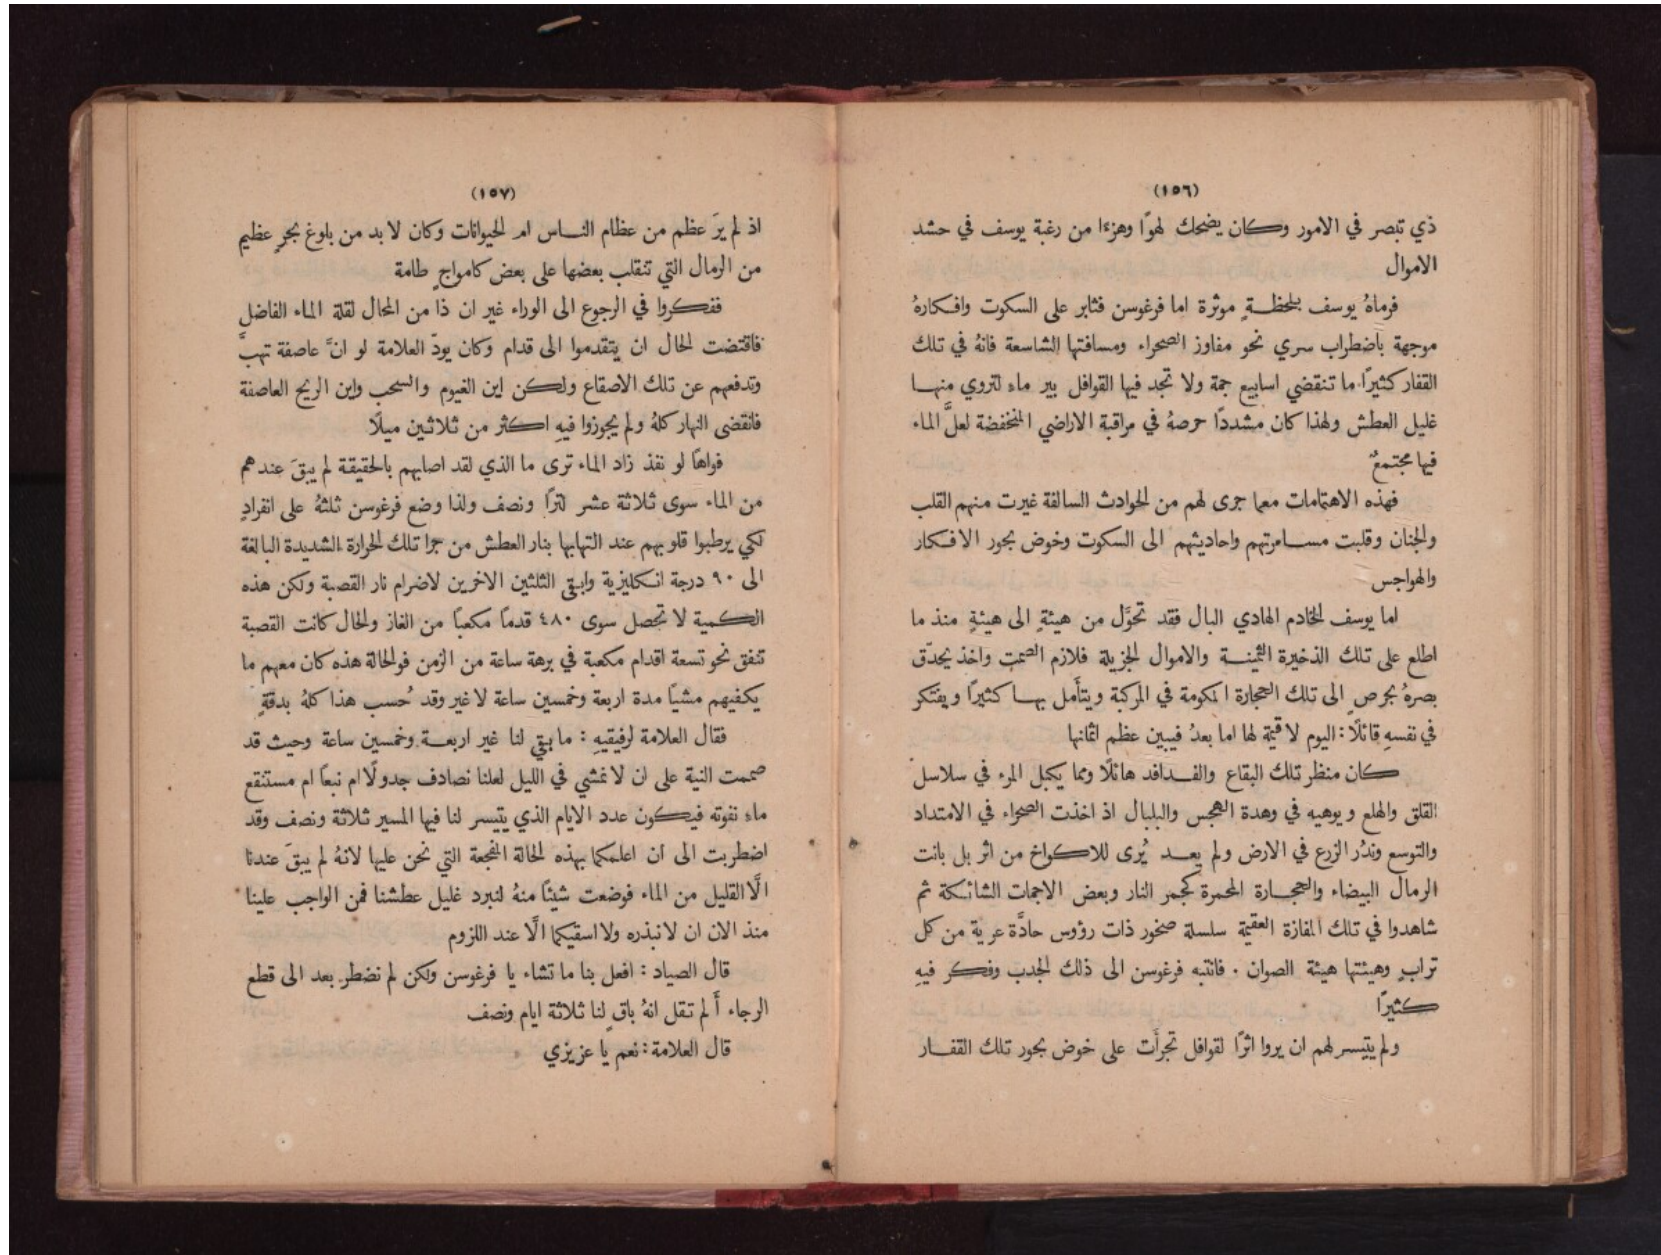 (١٥٦)
ذي تبصر في الامور وكان يضحك لهوًا وهزءًا من رغبة يوسف في حشد
الاموال
فرماهُ يوسف بلحظةٍ موثرة اما فرغوسن فثابر على السكوت وافكارهُ
موجهة باضطراب سري نحو مفاوز الصحراء ومسافتها الشاسعة فانهُ في تلك
القفار كثيرًا ما تنقضي اسابيع جمة ولا تجد فيها القوافل بير ماء لتروي منها
غليل العطش ولهذا كان مشددًا حرصهُ في مراقبة الاراضي المنخفضة لعلَّ الماء
فيها مجتمعٌ
فهذه الاهتمامات معما جرى لهم من الحوادث السالفة غيرت منهم القلب
والجنان وقلبت مسامرتهم واحاديثهم الى السكوت وخوض بحور الافكار
والهواجس
اما يوسف الخادم الهادي البال فقد تحوَّل من هيئةٍ الى هيئةٍ منذ ما
اطلع على تلك الذخيرة الثمينة والاموال الجزيلة فلازم الصمت واخذ يحدّق
بصرهُ بحرص الى تلك الحجارة المكومة في المركبة ويتأَمل بها كثيرًا ويفتكر
في نفسهِ قائلًا: اليوم لا قيمة لها اما بعدُ فيبين عظم اثمانها
كان منظر تلك البقاع والفدافد هائلًا ومما يكبل المرء في سلاسل
القلق والهلع ويوهيه في وهدة الهجس والبلبال اذ اخذت الصحراء في الامتداد
والتوسع وندُر الزرع في الارض ولم يعد يُرى للاكواخ من اثر بل بانت
الرمال البيضاء والحجارة المحمرة كجمر النار وبعض الاجمات الشائكة ثم
شاهدوا في تلك المفازة العقيمة سلسلة صخور ذات رؤوس حادَّة عرية من كل
ترابٍ وهيئتها هيئة الصوان . فانتبه فرغوسن الى ذلك الجدب وفكر فيهِ
كثيرًا
ولم يتيسر لهم ان يروا اثرًا لقوافل تجرأَت على خوض بحور تلك القفار
(١٥٧)
اذ لم يرَ عظم من عظام الناس ام الحيوانات وكان لا بد من بلوغ بحرٍ عظيم
من الرمال التي تنقلب بعضها على بعض كامواجٍ طامة
ففكروا في الرجوع الى الوراء غير ان ذا من المحال لقلة الماء الفاضل
فاقتضت الحال ان يتقدموا الى قدام وكان يودّ العلامة لو انَّ عاصفة تهبَّ
وتدفعهم عن تلك الاصقاع ولكن اين الغيوم والسحب واين الريح العاصفة
فانقضى النهار كلهُ ولم يجوزوا فيهِ اكثر من ثلاثين ميلًا
فواهًا لو نفذ زاد الماء ترى ما الذي لقد اصابهم بالحقيقة لم يبقَ عندهم
من الماء سوى ثلاثة عشر لترًا ونصف ولذا وضع فرغوسن ثلثهُ على انفرادٍ
لكي يرطبوا قلوبهم عند التهابها بنار العطش من جرا تلك الحرارة الشديدة البالغة
الى ٩٠ درجة انكليزية وابقى الثلثين الاخرين لاضرام نار القصبة ولكن هذه
الكمية لا تحصل سوى ٤٨٠ قدمًا مكعبًا من الغاز والحال كانت القصبة
تنفق نحو تسعة اقدام مكعبة في برهة ساعة من الزمن فوالحالة هذه كان معهم ما
يكفيهم مشيًا مدة اربعة وخمسين ساعة لا غير وقد حُسب هذا كلهُ بدقةٍ
فقال العلامة لرفيقيهِ : ما بقي لنا غير اربعة وخمسين ساعة وحيث قد
صممت النية على ان لا نمشي في الليل لعلنا نصادف جدولًا ام نبعًا ام مستنقع
ماء نفوته فيكون عدد الايام الذي يتيسر لنا فيها المسير ثلاثة ونصف وقد
اضطربت الى ان اعلمكما بهذه الحالة المفجعة التي نحن عليها لانهُ لم يبقَ عندنا
الَّا القليل من الماء فوضعت شيئًا منهُ لنبرد غليل عطشنا فمن الواجب علينا
منذ الان ان لا نبذره ولا اسقيكما الَّا عند اللزوم
قال الصياد : افعل بنا ما تشاء يا فرغوسن ولكن لم نضطر بعد الى قطع
الرجاء أَلم تقل انهُ باقٍ لنا ثلاثة ايام ونصف
قال العلامة : نعم يا عزيزي